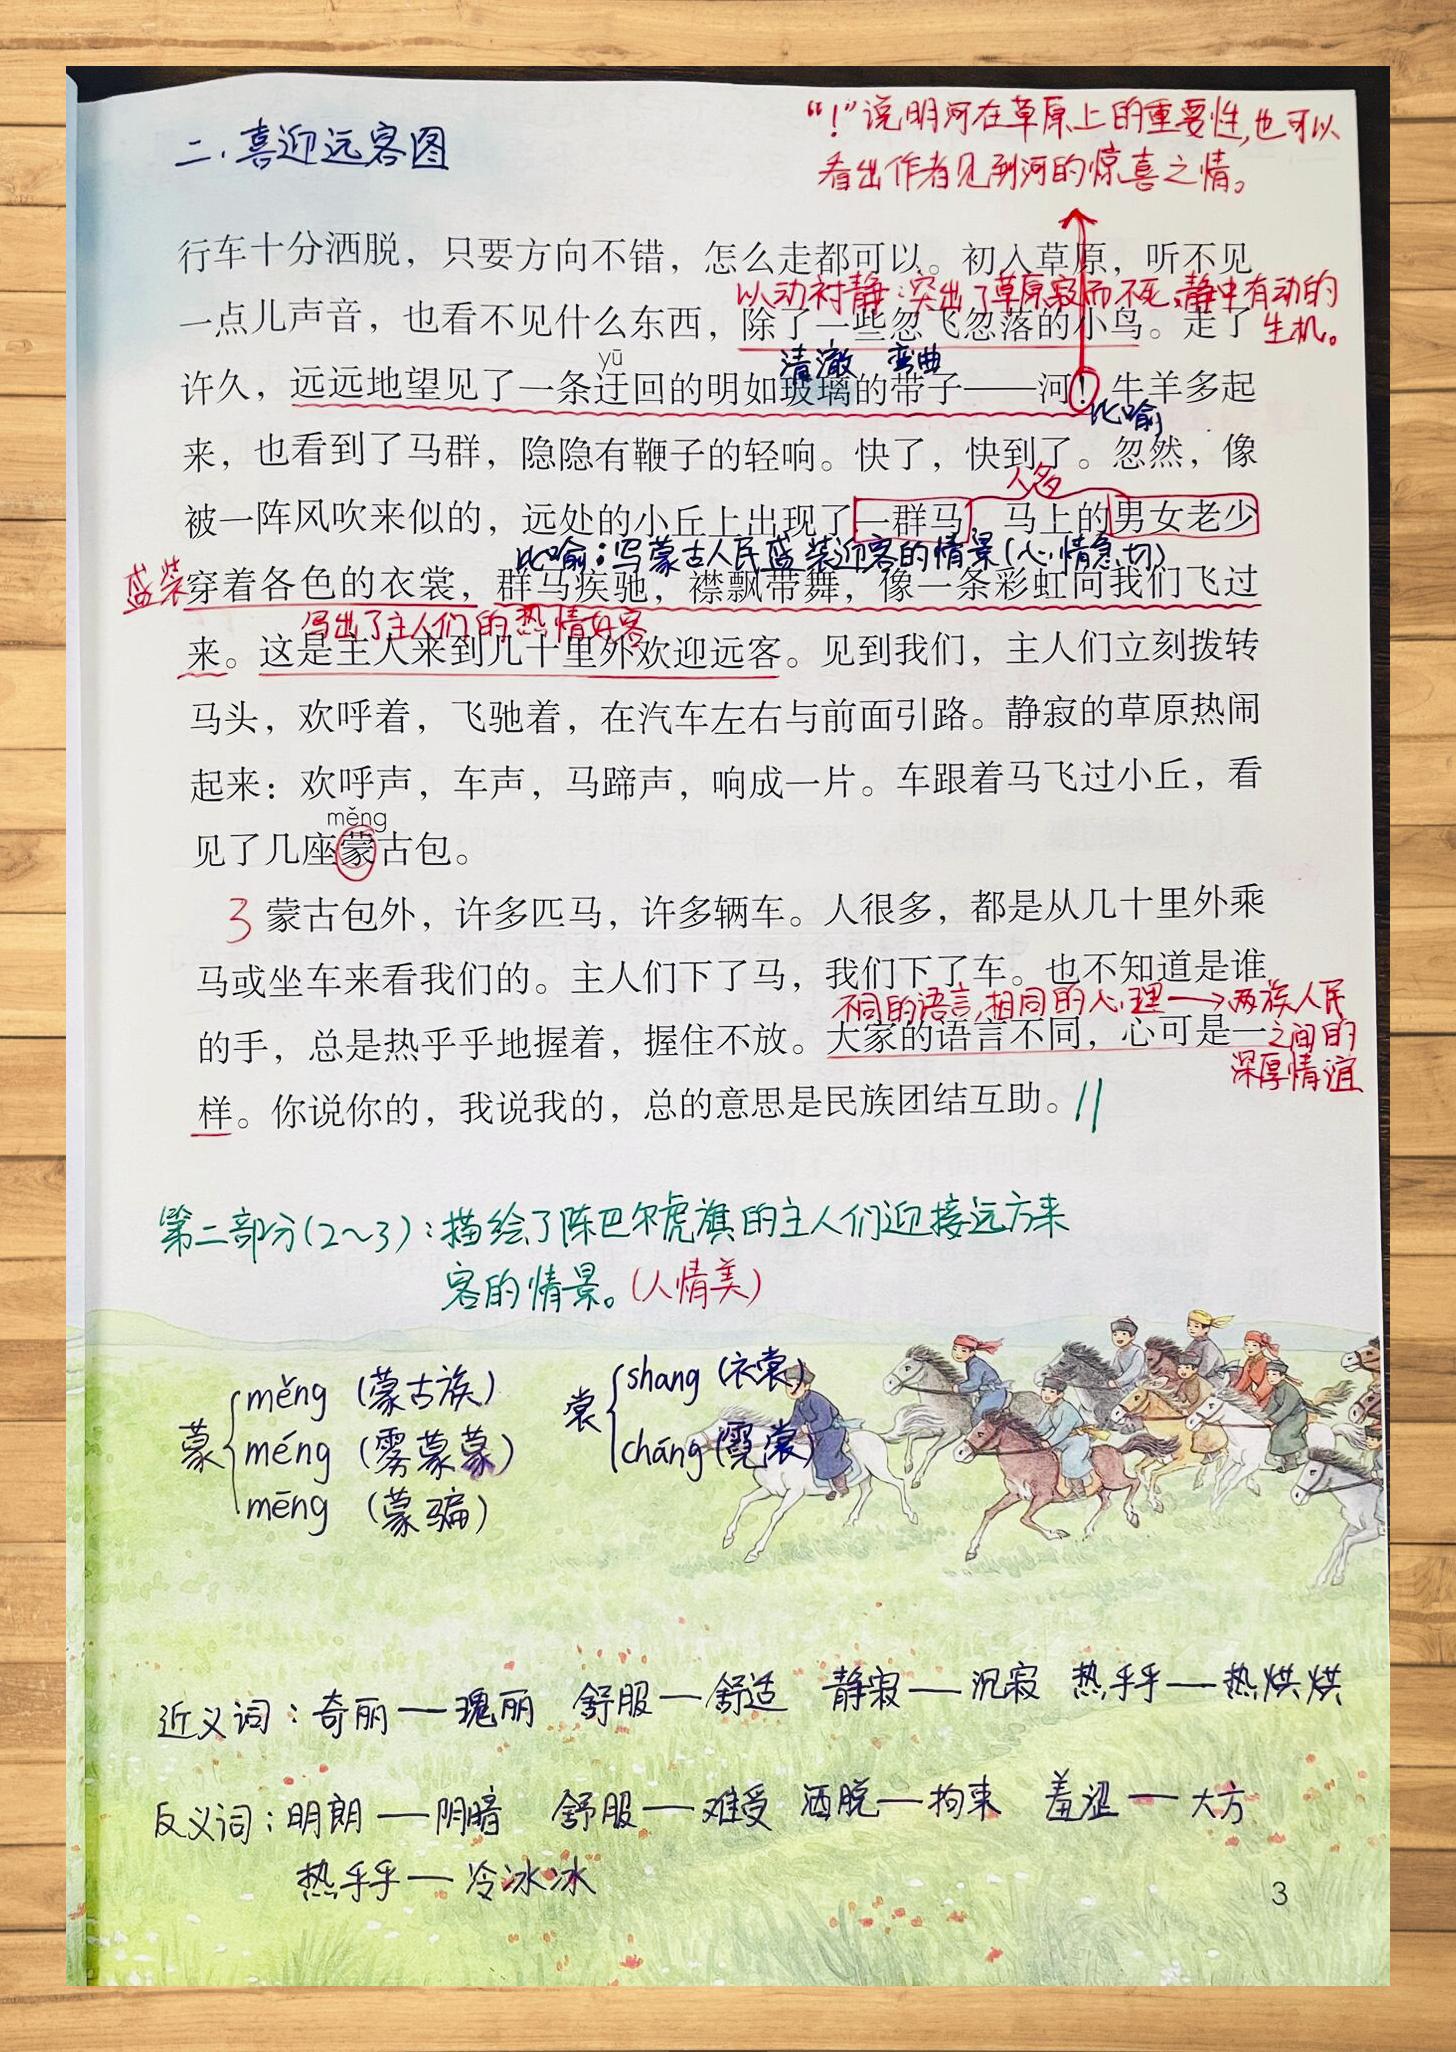 二.喜迎远客图
“！”说明河在草原上的重要性,也可以
看出作者见到河的惊喜之情。
行车十分洒脱，只要方向不错，怎么走都可以。初入草原，听不见
以动衬静:突出了草原寂而不死,静中有动的
生机。
一点儿声音，也看不见什么东西，除了一些忽飞忽落的小鸟。走了
yū
清澈 弯曲
许久，远远地望见了一条迂回的明如玻璃的带子——河！牛羊多起
比喻
来，也看到了马群，隐隐有鞭子的轻响。快了，快到了。忽然，像
人多
被一阵风吹来似的，远处的小丘上出现了一群马，马上的男女老少
比喻:写蒙古人民盛装迎客的情景(心情急切)
盛装
穿着各色的衣裳，群马疾驰，襟飘带舞，像一条彩虹向我们飞过
写出了主人们的热情好客
来。这是主人来到几十里外欢迎远客。见到我们，主人们立刻拨转
马头，欢呼着，飞驰着，在汽车左右与前面引路。静寂的草原热闹
起来：欢呼声，车声，马蹄声，响成一片。车跟着马飞过小丘，看
měng
见了几座蒙古包。
3 蒙古包外，许多匹马，许多辆车。人很多，都是从几十里外乘
马或坐车来看我们的。主人们下了马，我们下了车。也不知道是谁
不同的语言,相同的心理→两族人民
之间的
深厚情谊
的手，总是热乎乎地握着，握住不放。大家的语言不同，心可是一
样。你说你的，我说我的，总的意思是民族团结互助。//
第二部分(2～3):描绘了陈巴尔虎旗的主人们迎接远方来
客的情景。(人情美)
蒙
měng (蒙古族)
méng (雾蒙蒙)
mēng (蒙骗)
裳
shang (衣裳)
cháng (霓裳)
近义词:奇丽—瑰丽 舒服—舒适 静寂—沉寂 热乎乎—热烘烘
反义词:明朗—阴暗 舒服—难受 洒脱—拘束 羞涩—大方
热乎乎—冷冰冰
3